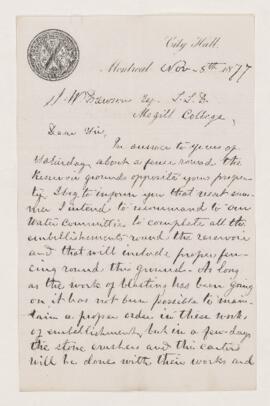 City Hall.
Montreal Nov. 5th 1877
J. W. Dawson Esq. L.L.D.
Mcgill College,
Dear Sir,
In answer to yours of
Saturday about a fence round the
Reservoir grounds opposite your proper-
ty I beg to inform you that next sum-
mer I intend to recommend to our
Water Committee to complete all the
embellishments round the reservoir
and that will include proper fen-
cing round this ground. As long
as the work of blasting has been going
on it has not been possible to main-
tain a proper order in these works
of embellishment, but in a few days
the stone crushers and the carters
will be done with their works and